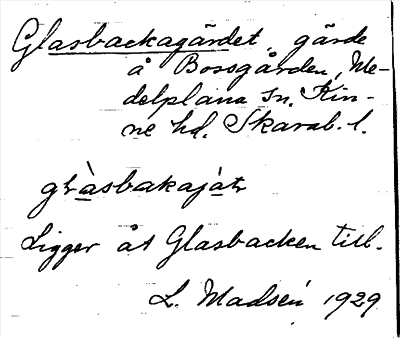 Glasbackagärdet, gärde
å Bossgården, Me-
delplana sn. Kin-
ne hd. Skarab. l.
glàsbakajätr
Ligger åt Glasbacken till.
L. Madsén 1929